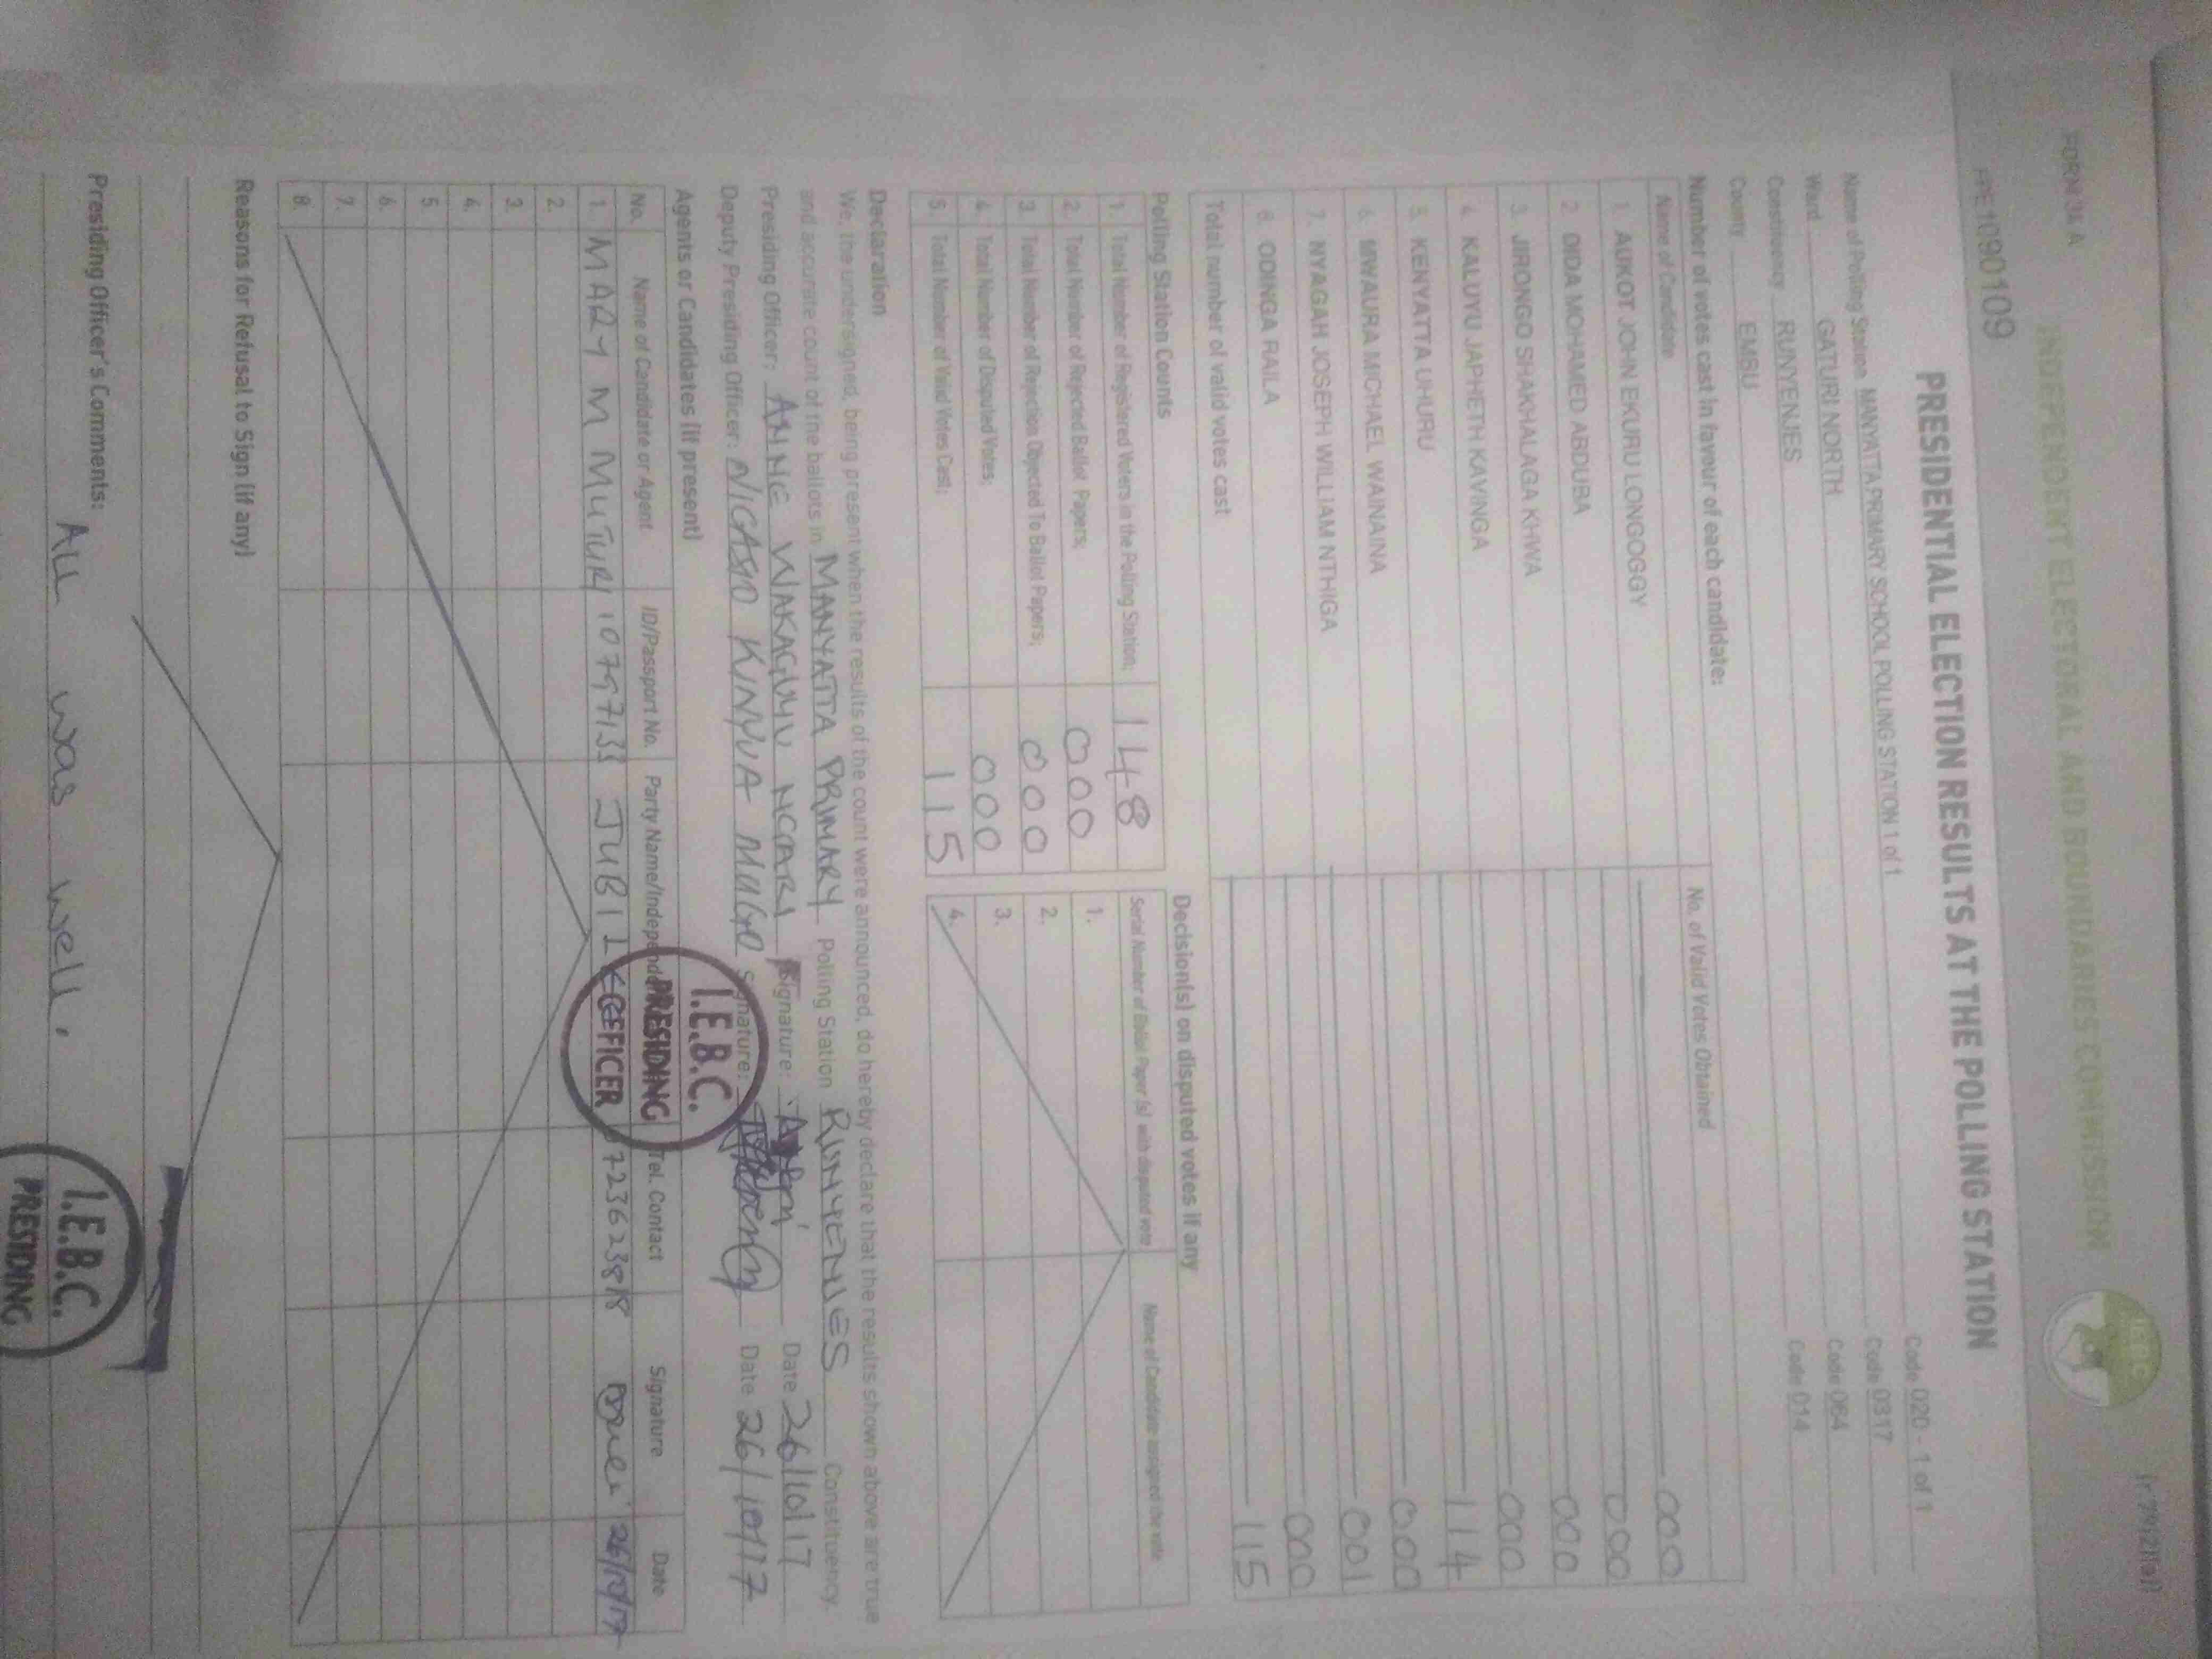 FORM 34 A
INDEPENDENT ELECTORAL AND BOUNDARIES COMMISSION
IEBC
PPE1090109
PRESIDENTIAL ELECTION RESULTS AT THE POLLING STATION
Name of Polling Station MANYATTA PRIMARY SCHOOL POLLING STATION 1 of 1 Code 020 - 1 of 1
Ward GATURI NORTH Code 0317
Constituency RUNYENJES Code 064
County EMBU Code 014
Number of votes cast in favour of each candidate:
Name of Candidate No. of Valid Votes Obtained
1. AUKOT JOHN EKURU LONGOGGY 000
2. DIDA MOHAMED ABDUBA 000
3. JIRONGO SHAKHALAGA KHWA 000
4. KALUYU JAPHETH KAVINGA 000
5. KENYATTA UHURU 114
6. MWAURA MICHAEL WAINAINA 000
7. NYAGAH JOSEPH WILLIAM NTHIGA 001
8. ODINGA RAILA 000
Total number of valid votes cast 115
Polling Station Counts
1. Total Number of Registered Voters in the Polling Station; 148
2. Total Number of Rejected Ballot Papers; 000
3. Total Number of Rejection Objected To Ballot Papers; 000
4. Total Number of Disputed Votes; 000
5. Total Number of Valid Votes Cast; 115
Decision(s) on disputed votes if any
Serial Number of Ballot Paper (s) with disputed vote Name of Candidate assigned the vote
1.
2.
3.
4.
Declaration
We, the undersigned, being present when the results of the count were announced, do hereby declare that the results shown above are true
and accurate count of the ballots in MANYATTA PRIMARY Polling Station RUNYENJES Constituency.
Presiding Officer; ANNE WAKAGUYU NGARI Signature: Date 26/10/17
Deputy Presiding Officer: NIGASIO KINYUA MUGO Signature: Date 26/10/17
Agents or Candidates (if present)
No. Name of Candidate or Agent ID/Passport No. Party Name/Independent Tel. Contact Signature Date
1. MARY M MUTURI 10797133 JUBILEE 0723623818 26/10/17
2.
3.
4.
5.
6.
7.
8.
I.E.B.C.
PRESIDING
OFFICER
Reasons for Refusal to Sign (if any)
Presiding Officer's Comments:
ALL was well.
I.E.B.C.
PRESIDING